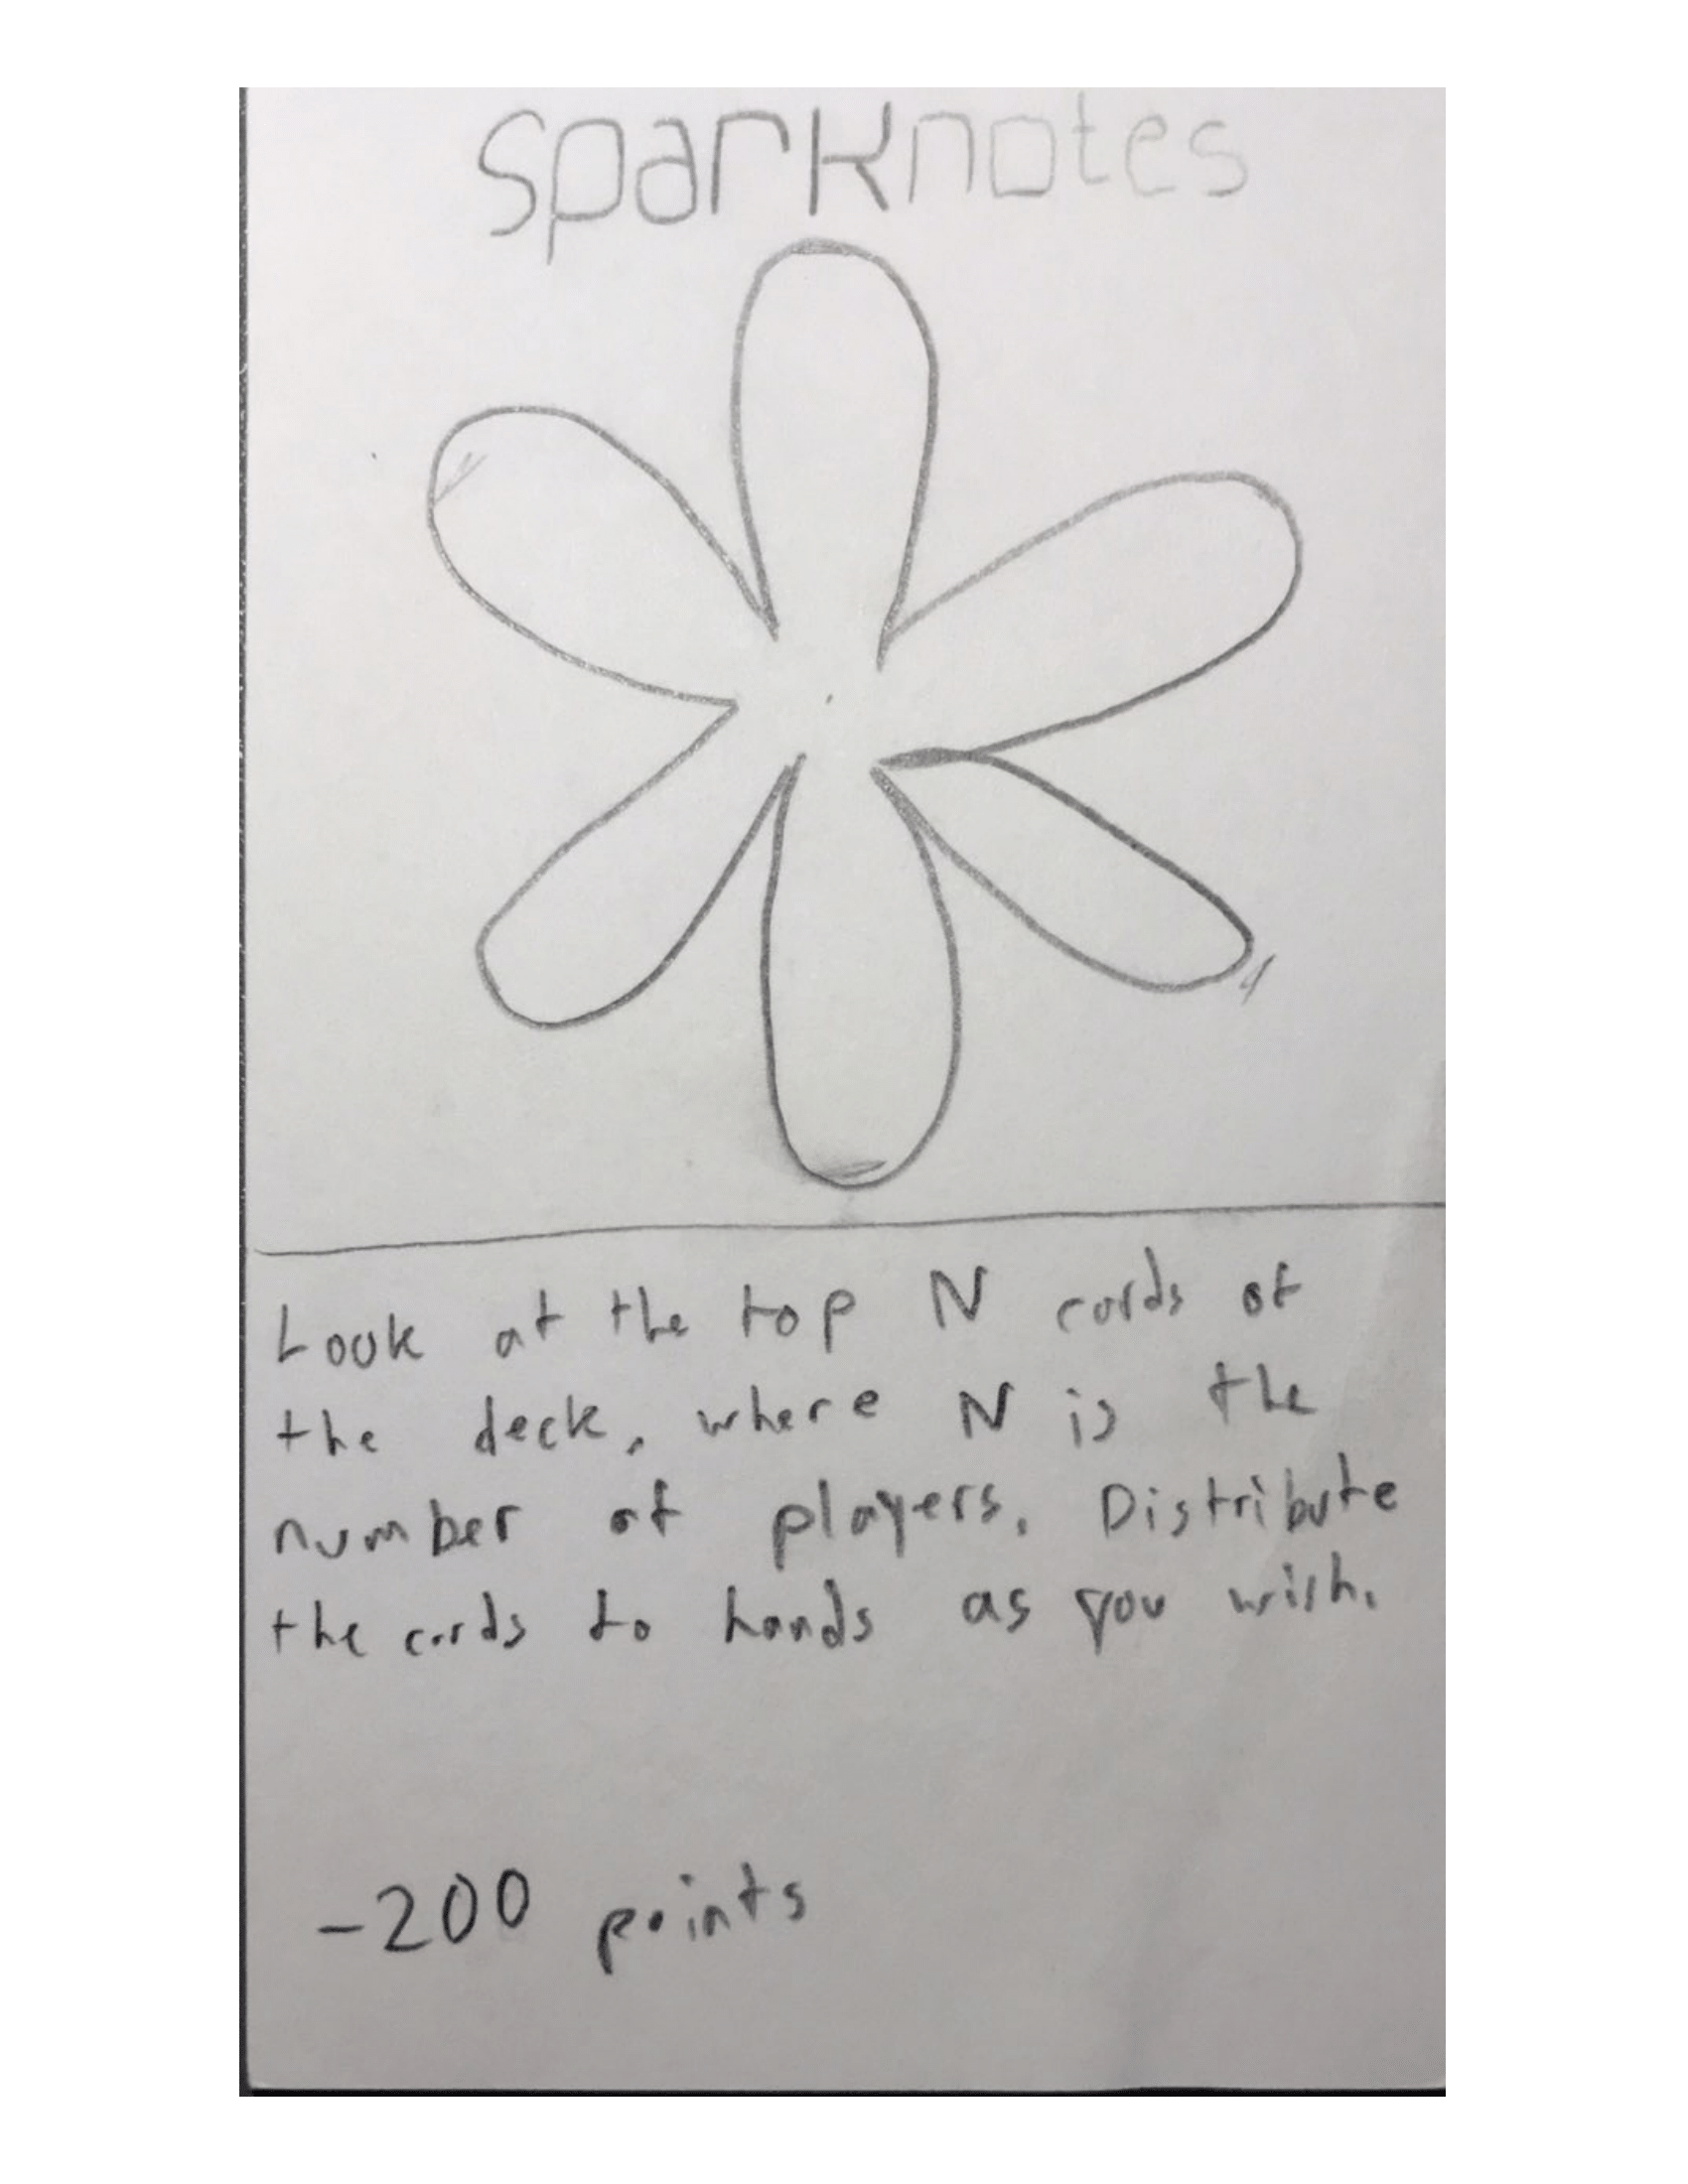 sparknotes
Look at the top N cards of
the deck, where N is the
number of players. Distribute
the cards to hands as you wish.
-200 points